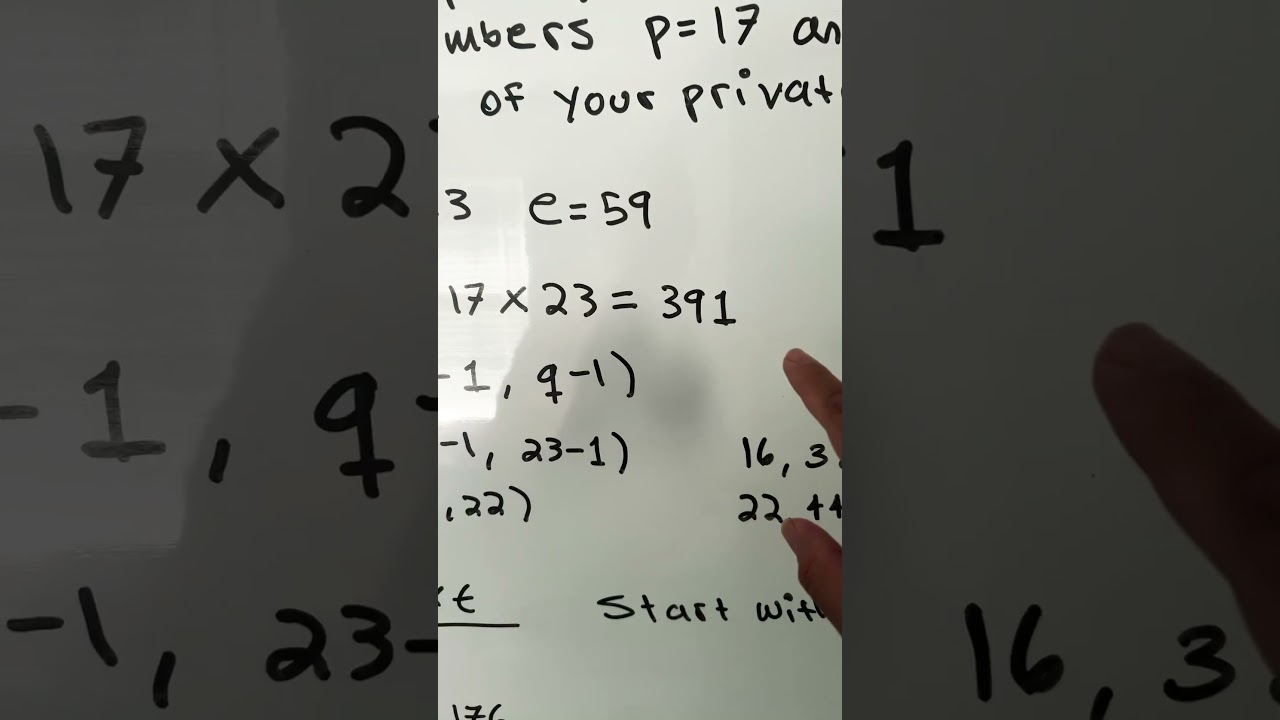 numbers p=17 an
of your privat
3 e=59
17 × 23 = 391
-1, q-1)
-1, 23-1) 16, 3
,22) 22, 44
Start wit
176